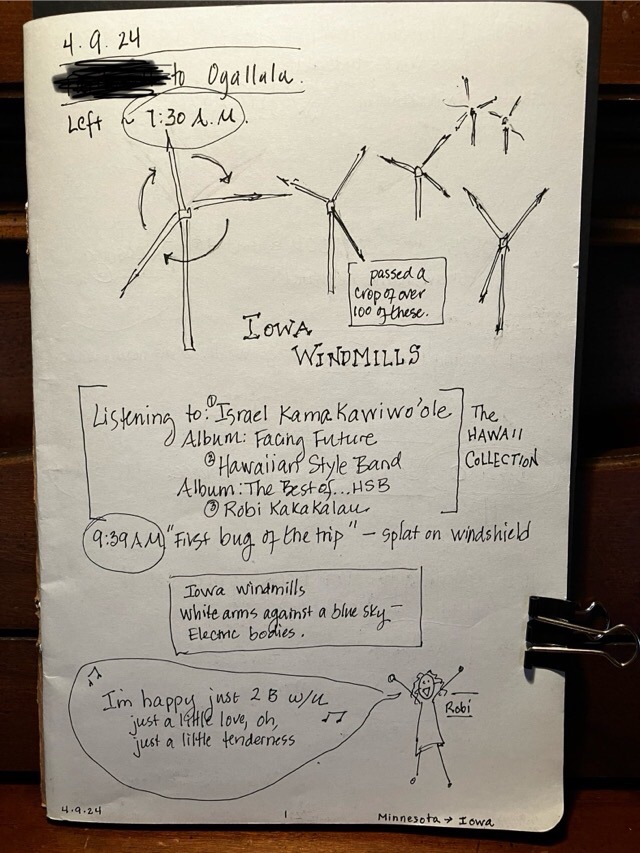 4.9.24
to Ogallala.
Left ~ 7:30 A.M.
passed a
crop of over
100 of these.
IOWA
WINDMILLS
Listening to: ① Israel Kamakawiwo'ole
Album: Facing Future
② Hawaiian Style Band
Album: The Best of... HSB
③ Robi Kakakalau
The
HAWAII
COLLECTION
9:39 AM "First bug of the trip" – splat on windshield
Iowa windmills
white arms against a blue sky –
Electric bodies.
I'm happy just 2 B w/u
just a little love, oh,
just a little tenderness
Robi
4.9.24
1
Minnesota → Iowa